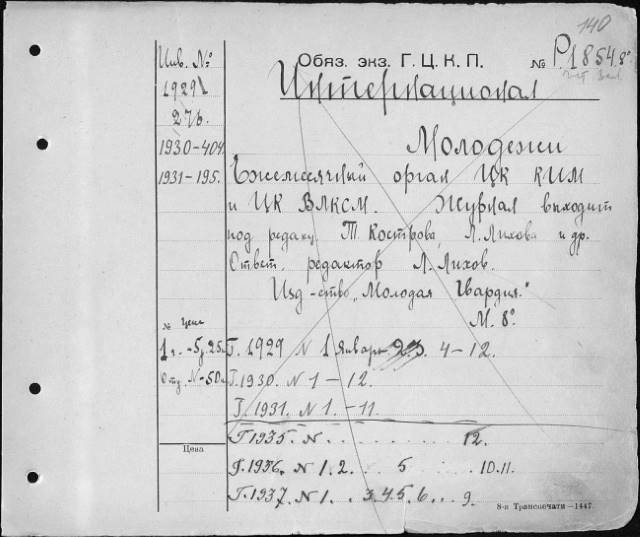 140
Инв. №
Обяз. экз. Г. Ц. К. П. № Р1854 8°
1929
276.
Интернационал
1930-404.
Молодежи
1931-195.
Ежемесячный орган ЦК КИМ
и ЦК ВЛКСМ. Журнал выходит
под редакц. Т. Кострова, Л. Лихова и др.
Ответ. редактор Л. Лихов.
Изд-ство „Молодая Гвардия."
М. 8°.
№ Цена
1 г. - 5 р. 25 к.
Г. 1929 N 1 Январь 2 3. 4-12.
Отд. N - 50 к.
Г. 1930. N 1-12.
Г. 1931. N 1.-11.
Цена
Г 1935. N . . . . . . . . . . . 12.
Г. 1936. N 1. 2. . . 5 . . . . 10. 11.
Г. 1937. N 1. . 3. 4. 5. 6. . . 9.
8-я Транспечати—1447.